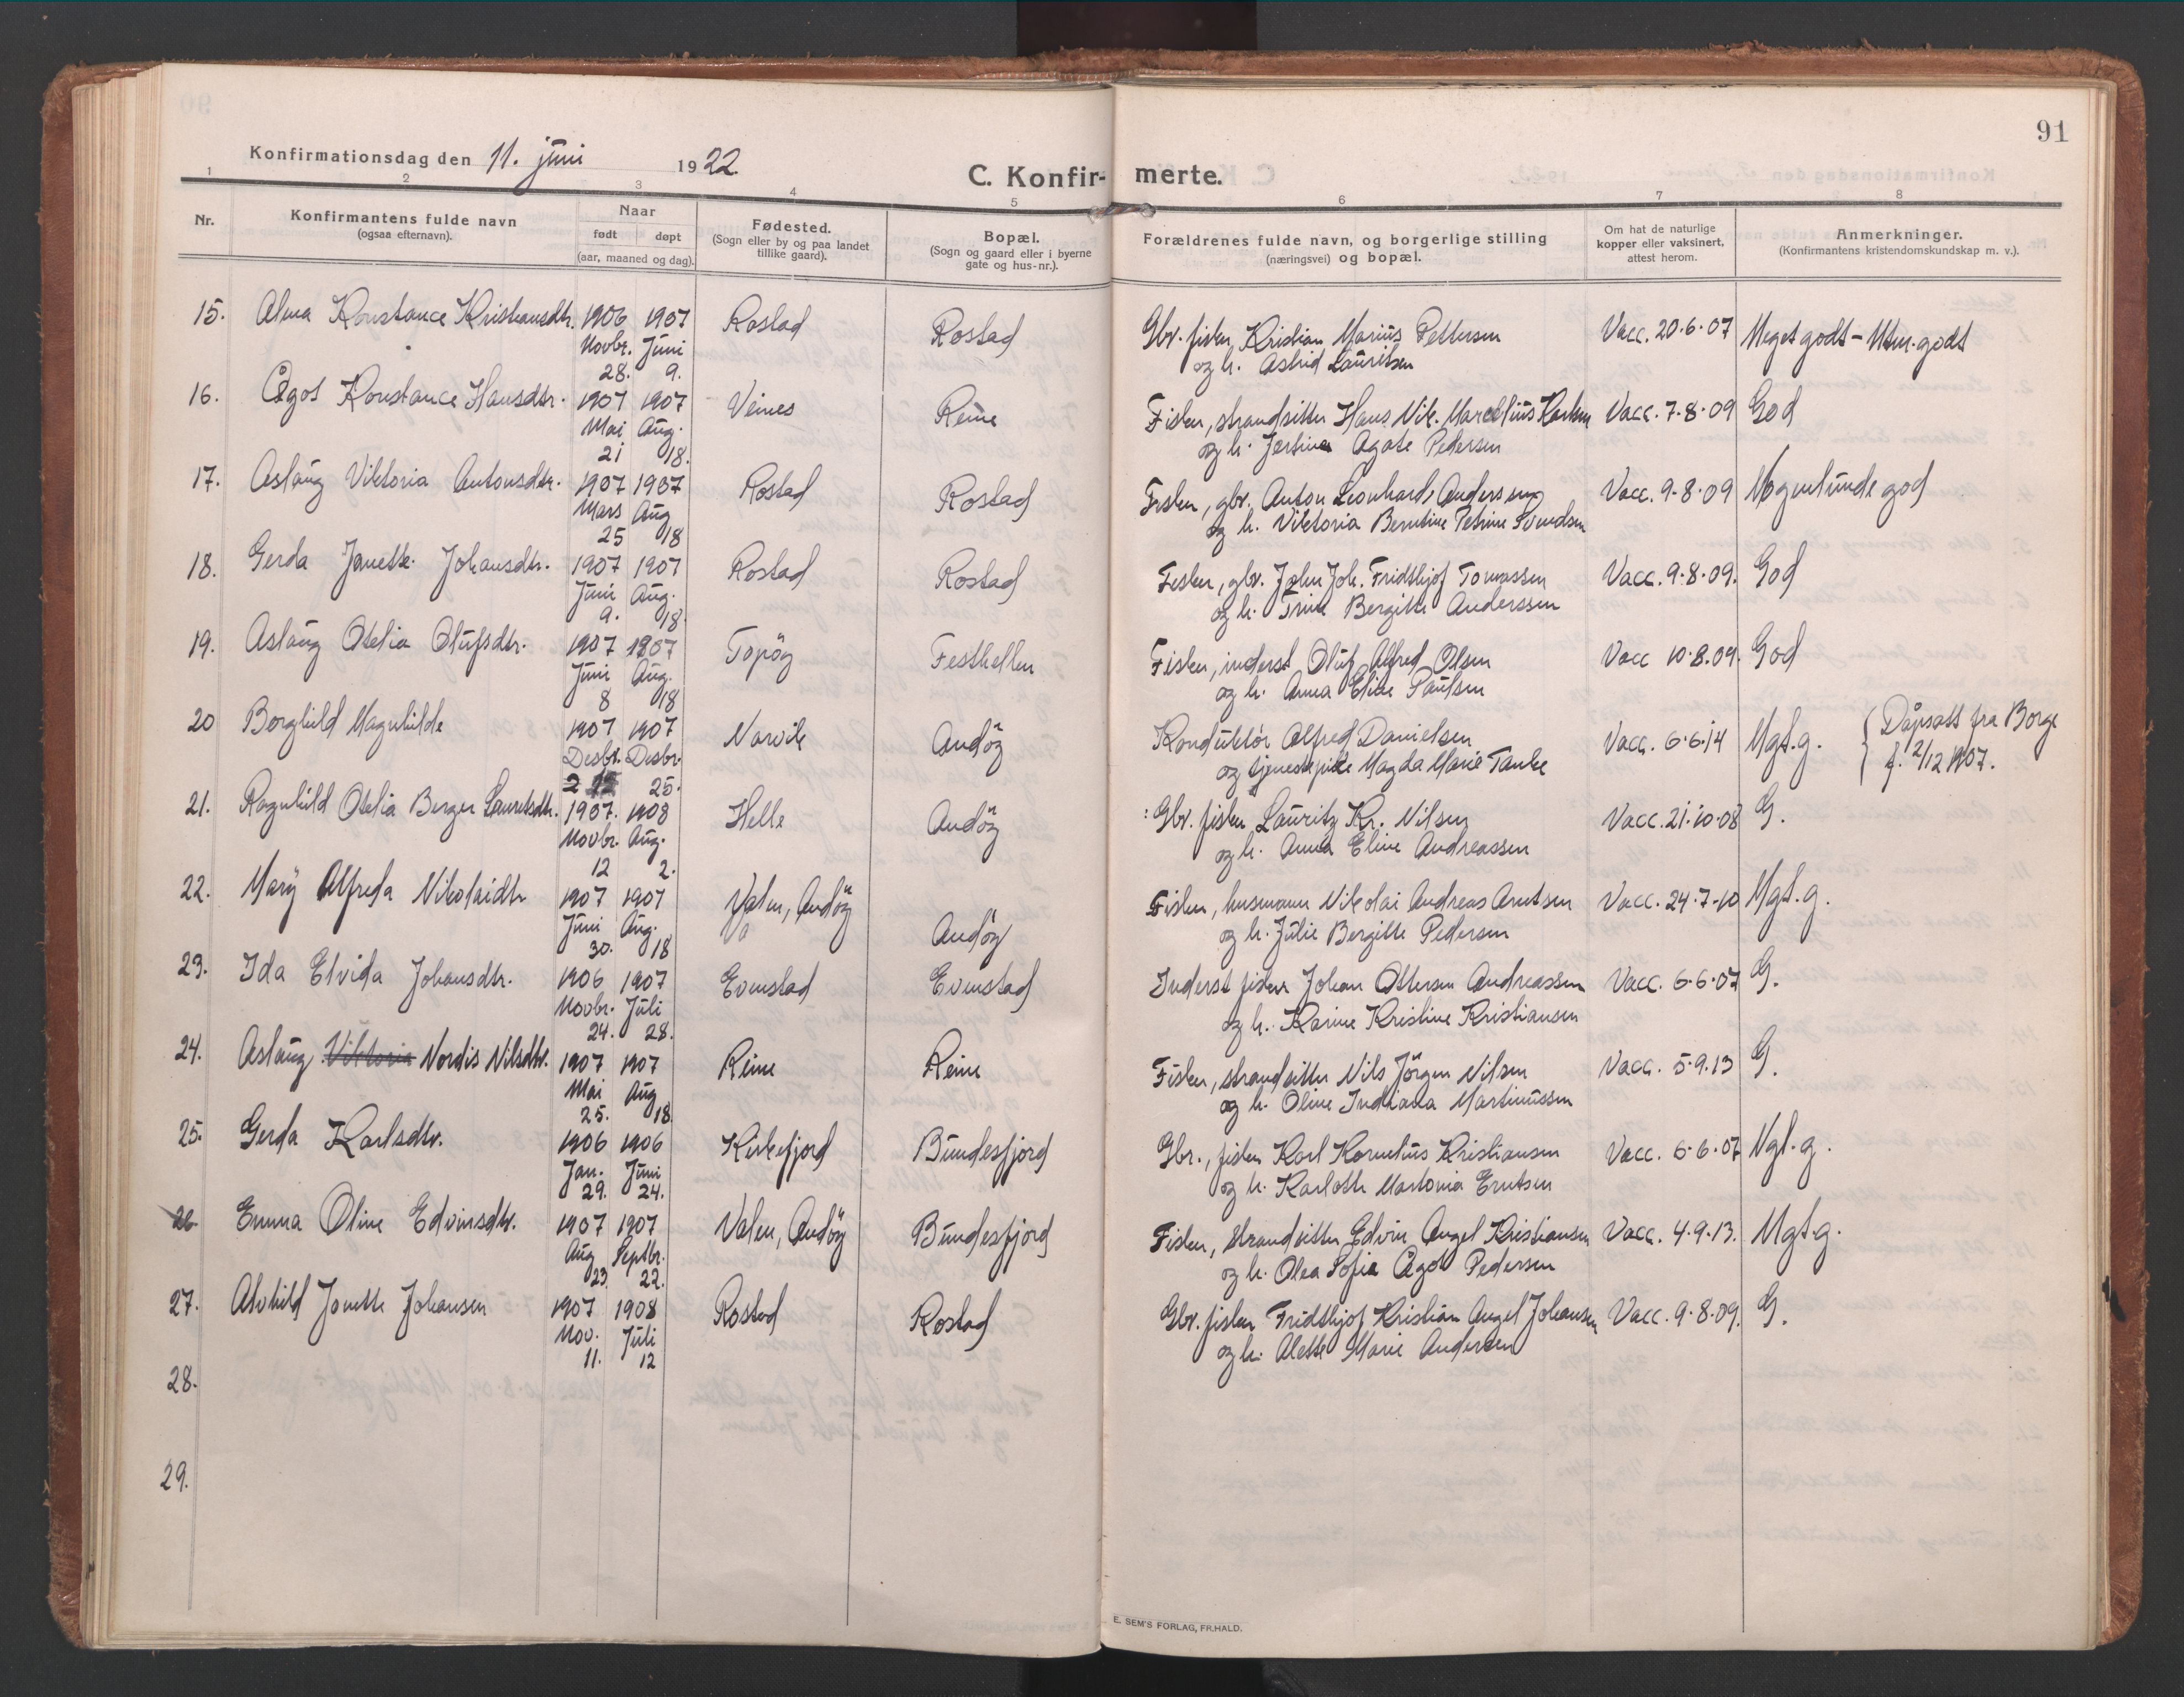 91
Konfirmationsdag den 11. juni 1922.
C. Konfir- merte.
1 2 3 4 5 6 7 8
Nr.
Konfirmantens fulde navn
(ogsaa efternavn).
Naar
født døpt
(aar, maaned og dag).
Fødested.
(Sogn eller by og paa landet
tillike gaard).
Bopæl.
(Sogn og gaard eller i byerne
gate og hus-nr.).
Forældrenes fulde navn, og borgerlige stilling
(næringsvei) og bopæl.
Om hat de naturlige
kopper eller vaksinert,
attest herom.
Anmerkninger.
(Konfirmantens kristendomskundskap m. v.).
15. Alma Konstance Kristiansdtr. 1906 1907 Rostad Rostad Gbr. fisker Kristian Marius Pettersen Vacc. 20.6.07 Meget godt - Utm. godt
Novbr. Juni og h. Astrid Lauritsen
28. 9.
16. Ågot Konstance Hansdtr. 1907 1907 Veines Reine Fisker, strandsitter Hans Nik. Marcelius Karlsen Vacc. 7-8-09 God
Mai Aug. og h. Agate Pedersen
21 18.
17. Aslaug Viktoria Antonsdtr. 1907 1907 Rostad Rostad Fisker, gbr. Anton Leonhard Andersen Vacc. 9-8-09 Nogenlunde god
Mars Aug og h. Viktoria Berntine Petrine Svendsen
25 18
18. Gerda Janette Johansdtr. 1907 1907 Rostad Rostad Fisker, gbr. John Joh. Fridthjof Tomassen Vacc. 9-8-09. God
Juni Aug. og h. Trine Bergitte Anderssen
9. 18.
19. Aslaug Otelia Olufsdtr. 1907 1907 Topöy Festhellen Fisker, inderst Oluf Alfred Olsen Vacc 10.8.09. God
Juni Aug. og h. Anna Eline Paulsen
8 18
20 Borghild Magnhilde 1907 1907 Narvik Andöy Konduktör Alfred Danielsen Vacc. 6.6.14 Mgt. g. { Dåpsatt fra Borge
Desbr. Desbr. og tjenestepike Magda Marie Tanke f. 2/12 1907.
2 25.
21. Ragnhild Otelia Berger Lauritsdtr. 1907. 1908 Helle Andöy Gbr. fisker Lauritz Kr. Nilsen Vacc. 21-10-08 G.
Novbr. Aug. og h. Anna Eline Andreassen
12 2.
22. Mary Alfreda Nikolaidtr 1907 1907 Valen, Andöy Andöy Fisker, husmann Nikolai Andreas Arntsen Vacc. 24.7-10 Mgt. g.
Juni Aug. og h. Julie Bergitte Pedersen
30. 18
23. Ida Elvida Johansdtr. 1906 1907 Evenstad Evenstad Inderst fisker Johan Ottersen Andreassen Vacc. 6.6.07 G.
Novbr. Juli og h. Karine Kristine Kristiansen
24. 28.
24. Aslaug Viktoria Nordis Nilsdtr. 1907 1907 Reine Reine Fisker, strandsitter Nils Jörgen Nilsen Vacc. 5.9.13 G.
Mai Aug og h. Oline Indiana Martinussen
25. 18.
25. Gerda Karlsdtr. 1906 1906 Kirkefjord Bundesfjord Gbr., fisker Karl Kornelius Kristiansen Vacc. 6-6-07 Ngl. g.
Jan. Juni og h. Karlotte Martonia Erntsen
29. 24.
26 Emma Oline Edvinsdtr. 1907 1907 Valen, Andöy Bundesfjord Fisker, strandsitter Edvin Angel Kristiansen Vacc. 4.9.13. Mgt. g.
Aug Septbr. og h. Olea Sofie Ågot Pedersen
23. 22.
27. Alvhild Jonette Johansen 1907 1908 Rostad Rostad Gbr. fisker Fridthjof Kristian Angel Johansen Vacc. 9-8-09. G.
Nov. Juli og h. Alette Marie Andersen
11. 12
28.
29.
E. SEM'S FORLAG, FR.HALD.